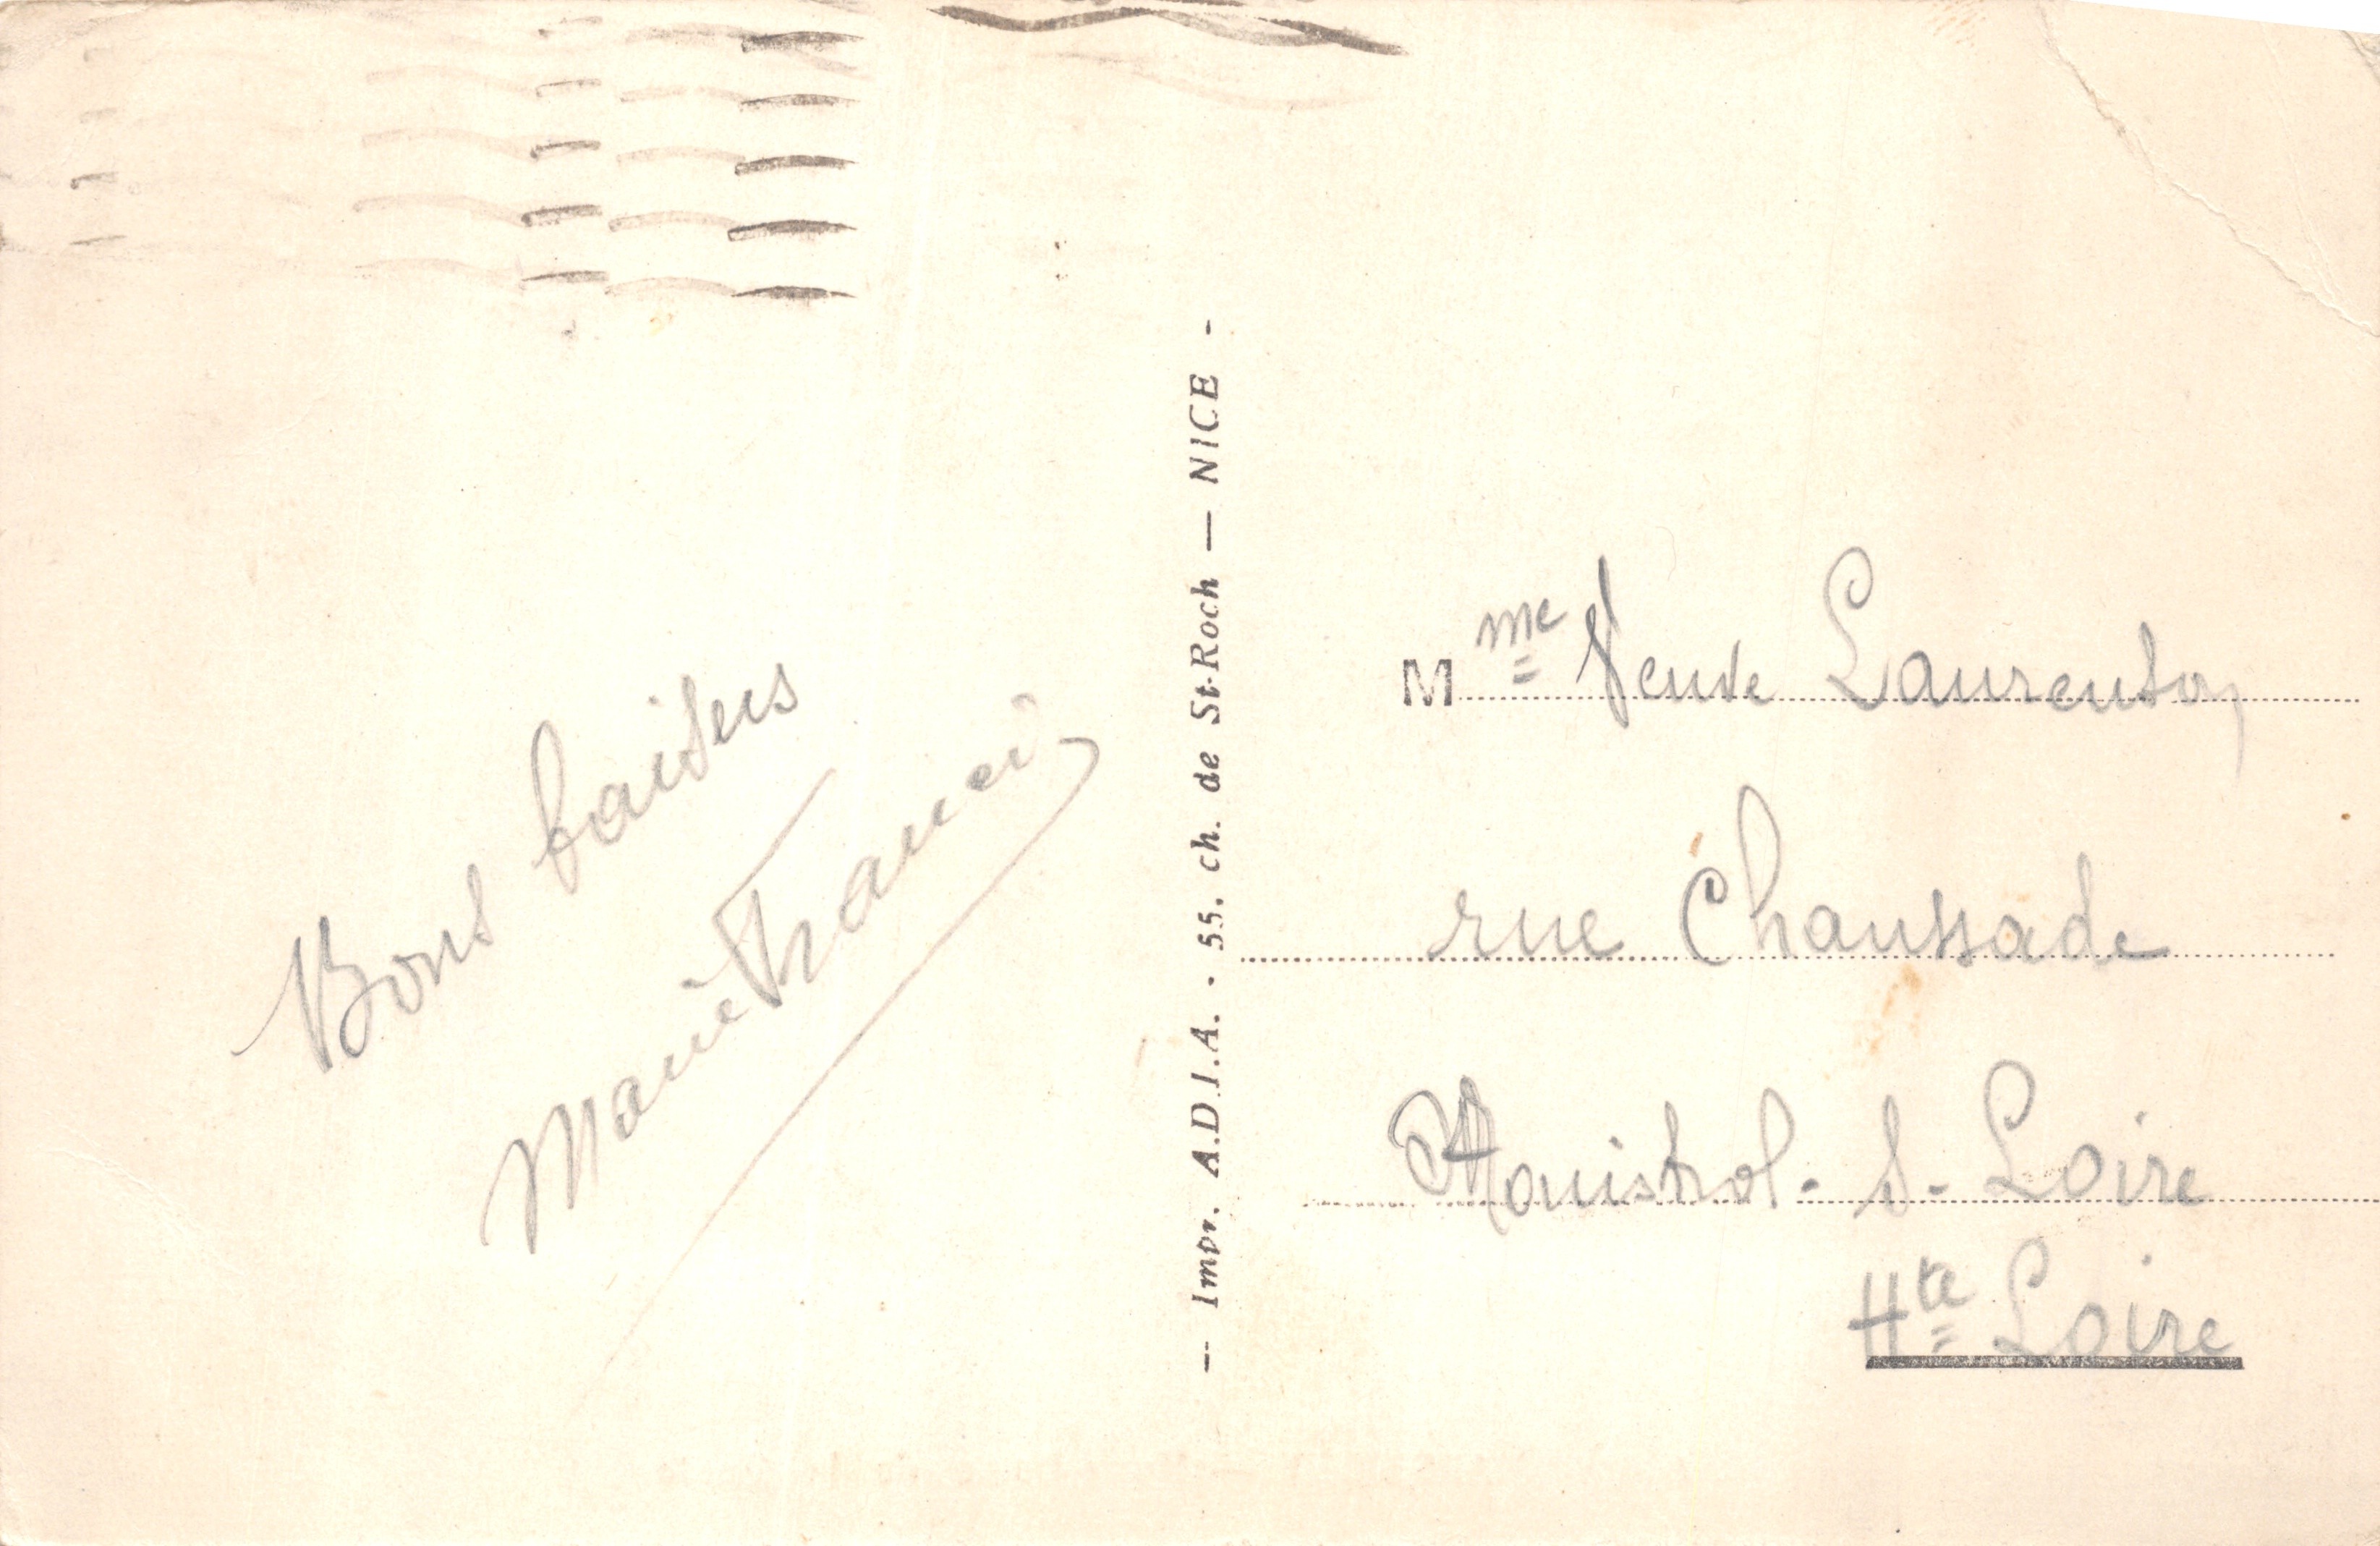 Bons baisers
Marie Franci
— Impr. A.D.I.A. - 55, ch. de St-Roch — NICE -
Mme Veuve Laurenson
rue Chaussade
Monistrol - S - Loire
Hte Loire